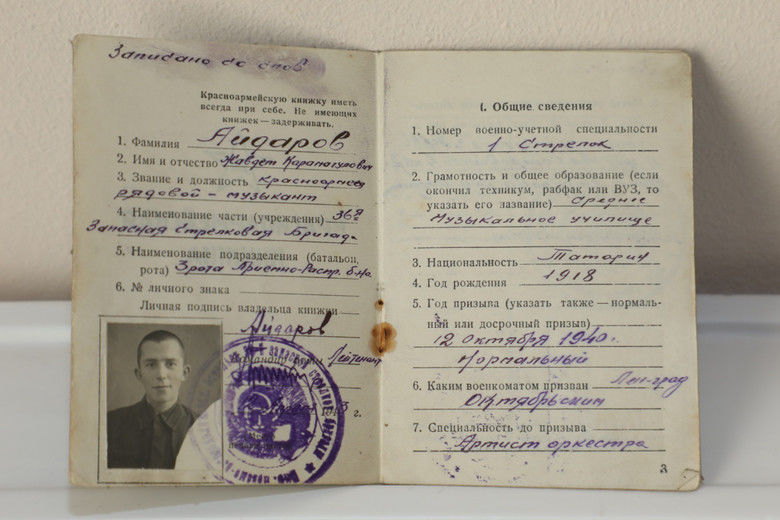 Записано со слов
Красноармейскую книжку иметь
всегда при себе. Не имеющих
книжек — задерживать.
1. Фамилия Айдаров
2. Имя и отчество Жавдет
3. Звание и должность красноармеец
рядовой — музыкант
4. Наименование части (учреждения) 36я
Запасная Стрелковая Бригада
5. Наименование подразделения (батальон,
рота) 3 рота
6. № личного знака
Личная подпись владельца книжки
Айдаров
Лейтенант
г.
1. Общие сведения
1. Номер военно-учетной специальности
1 Стрелок
2. Грамотность и общее образование (если
окончил техникум, рабфак или ВУЗ, то
указать его название) Среднее
Музыкальное училище
3. Национальность Татарин
4. Год рождения 1918
5. Год призыва (указать также — нормаль-
ный или досрочный призыв)
12 Октября 1940.
Нормальный
6. Каким военкоматом призван Лен-град
Октябрьским
7. Специальность до призыва
Артист оркестра
3